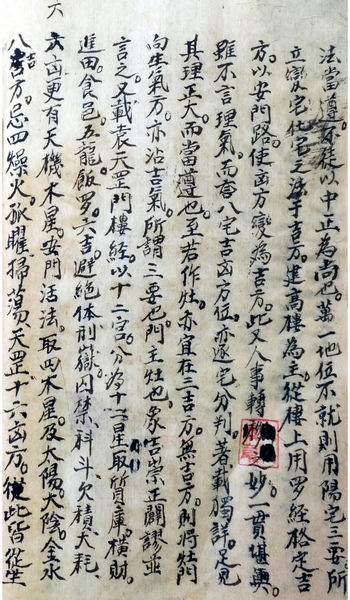 法當遵不徒以中正為尚也萬一地位不就則用陽宅三要所
立變宅仕宅之法于吉方建高樓為主從樓上用罗經格定吉
方以安門路使凶方變為吉方此又人事轉移之妙一貫堪輿
雖不言理氣而查八宅吉凶方位逐宅分判著載獨詳足見
其理正大而當遵也至若作灶亦宜在三吉方無吉方則將灶門
向生氣方亦沾吉氣所謂三要也門主灶也象吉崇正闢謬並
言之又載袁天罡門樓經以十二宮分為十二星取質庫橫財
進田食邑五龍飯罗六吉避絕体刑獄囚禁料斗欠積天耗
六凶更有天機木星安門活法取四木星及太陽太陰金水
八吉方忌四燥火孤曜掃蕩天罡十六凶方從此皆從坐
六